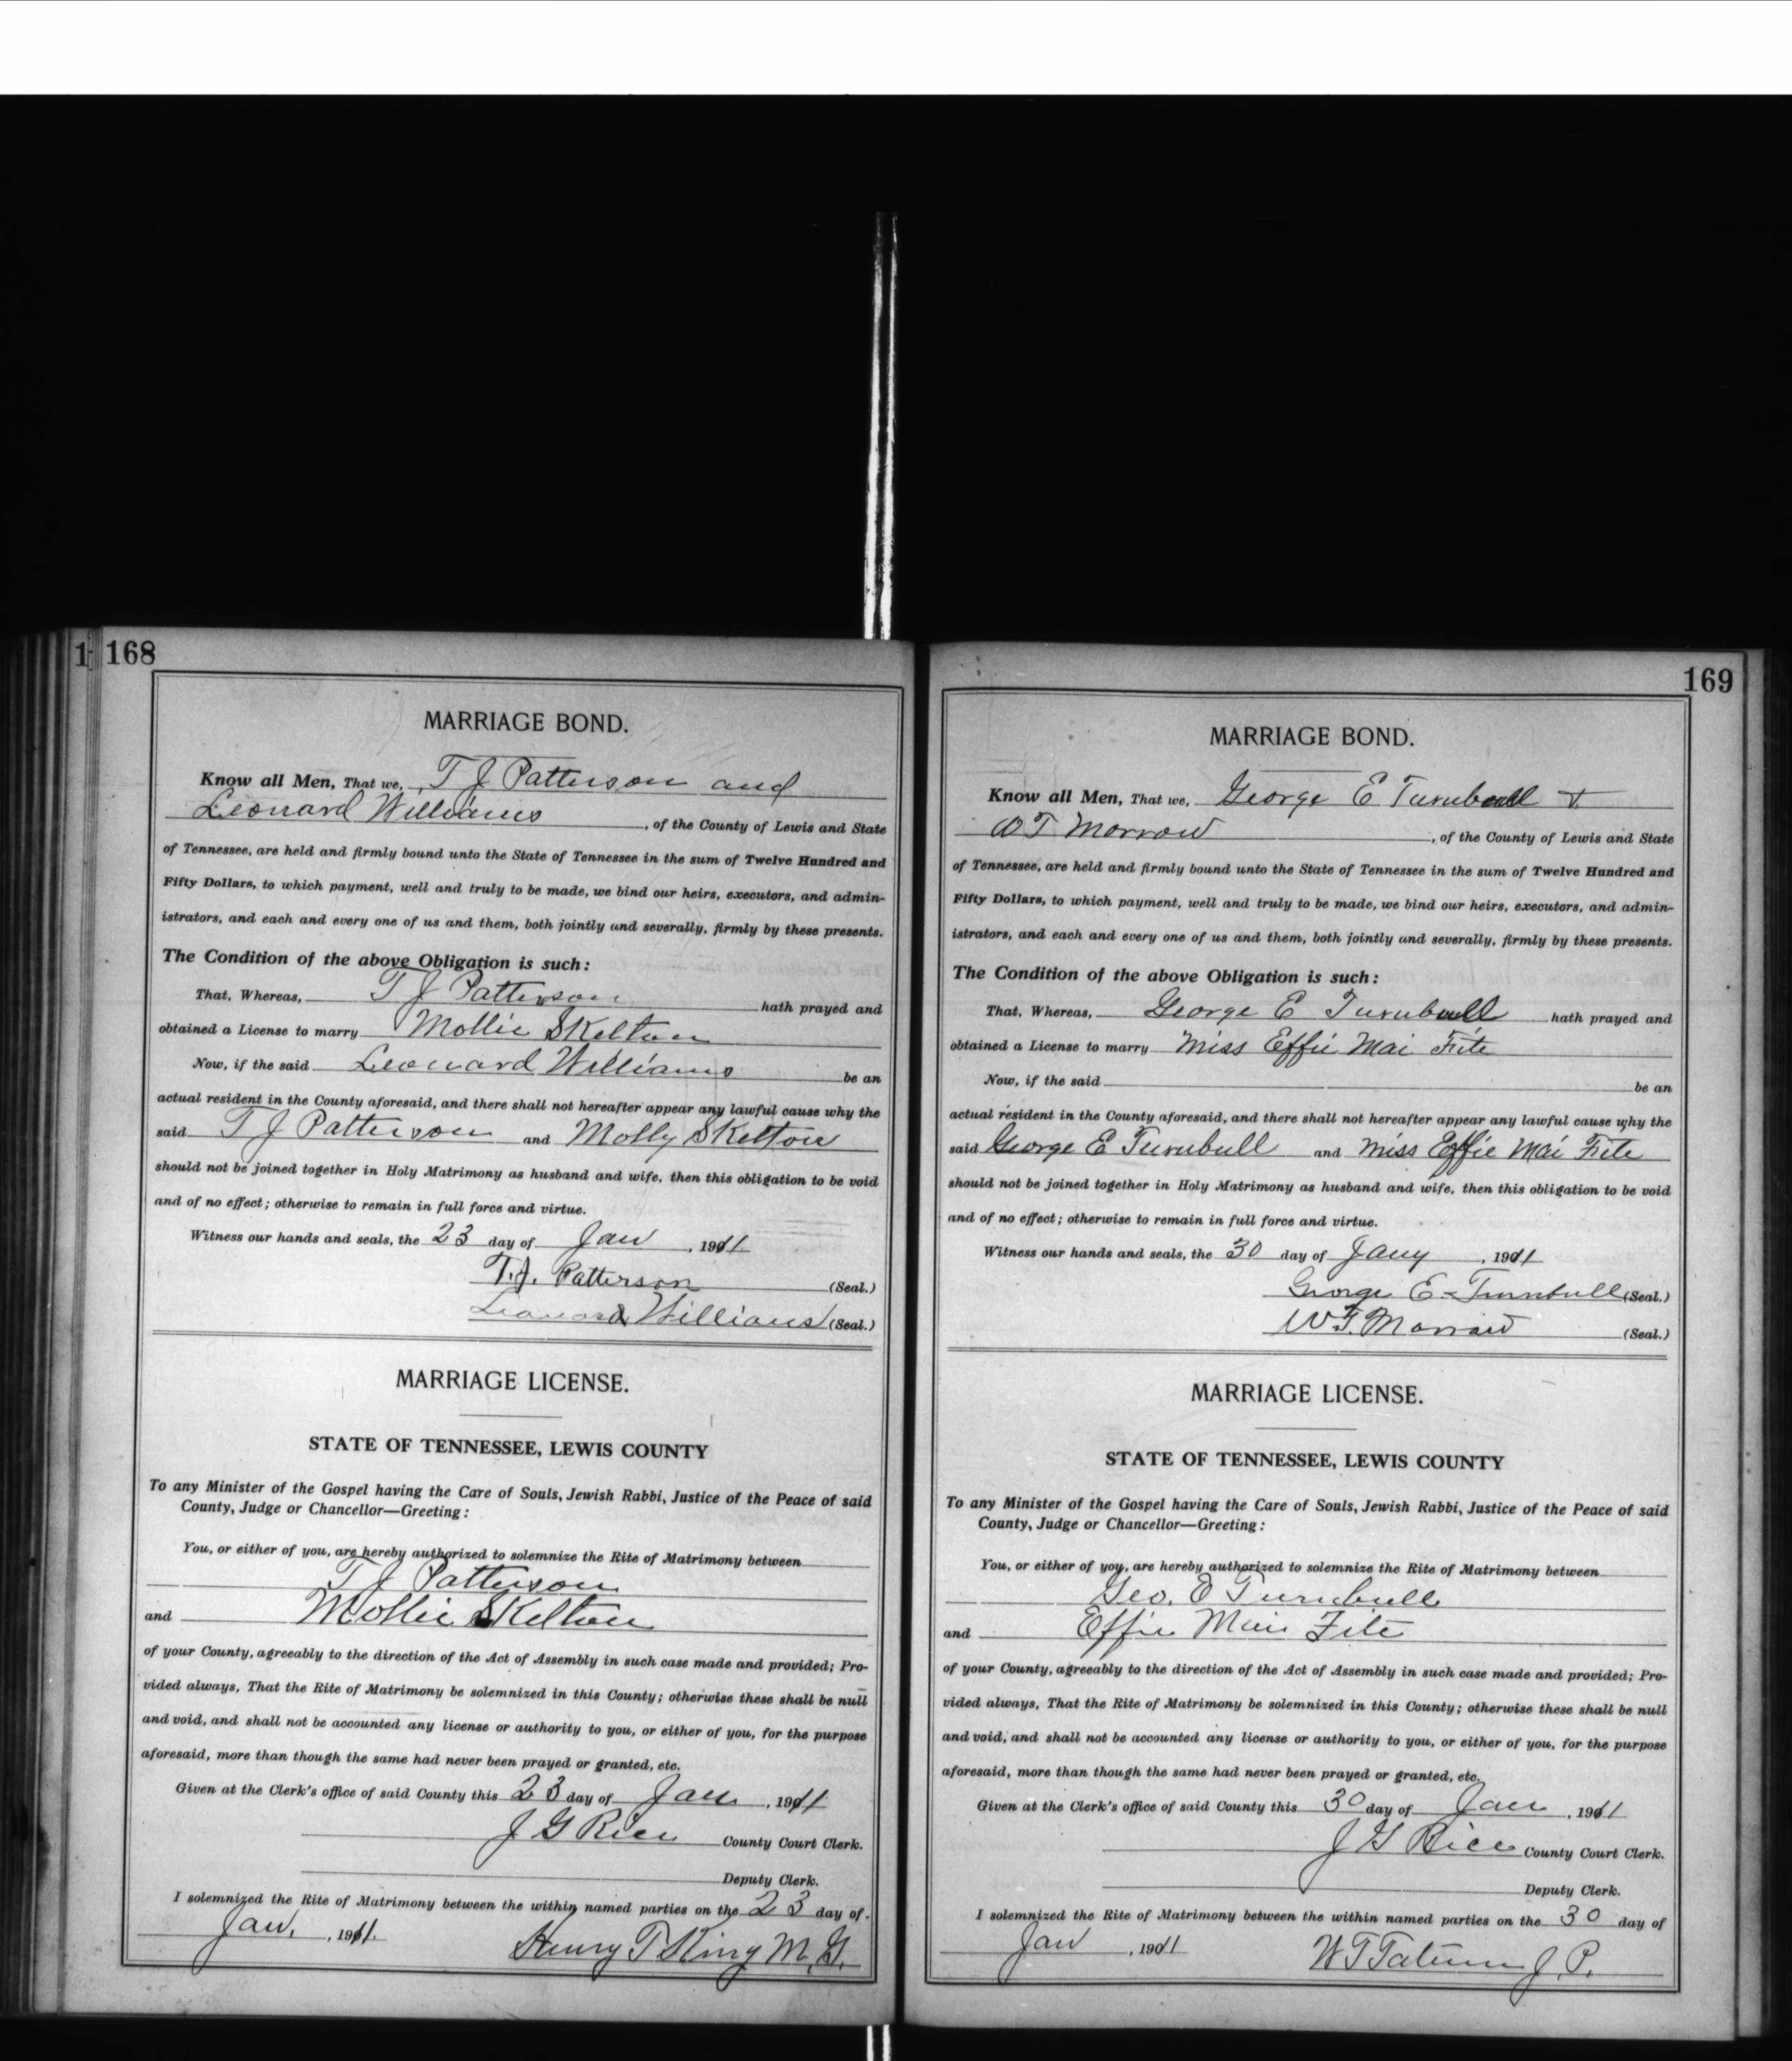 1
168
MARRIAGE BOND.
Know all Men, That we, T J Patterson and
Leonard Williams, of the County of Lewis and State
of Tennessee, are held and firmly bound unto the State of Tennessee in the sum of Twelve Hundred and
Fifty Dollars, to which payment, well and truly to be made, we bind our heirs, executors, and admin-
istrators, and each and every one of us and them, both jointly and severally, firmly by these presents.
The Condition of the above Obligation is such:
That, Whereas, T J Patterson hath prayed and
obtained a License to marry Mollie Skelton
Now, if the said Leonard Williams be an
actual resident in the County aforesaid, and there shall not hereafter appear any lawful cause why the
said T J Patterson and Molly Skelton
should not be joined together in Holy Matrimony as husband and wife, then this obligation to be void
and of no effect; otherwise to remain in full force and virtue.
Witness our hands and seals, the 23 day of Jan, 1911
T.J. Patterson (Seal.)
Leonard Williams (Seal.)
MARRIAGE LICENSE.
STATE OF TENNESSEE, LEWIS COUNTY
To any Minister of the Gospel having the Care of Souls, Jewish Rabbi, Justice of the Peace of said
County, Judge or Chancellor—Greeting:
You, or either of you, are hereby authorized to solemnize the Rite of Matrimony between
T J Patterson
and Mollie Skelton
of your County, agreeably to the direction of the Act of Assembly in such case made and provided; Pro-
vided always, That the Rite of Matrimony be solemnized in this County; otherwise these shall be null
and void, and shall not be accounted any license or authority to you, or either of you, for the purpose
aforesaid, more than though the same had never been prayed or granted, etc.
Given at the Clerk's office of said County this 23 day of Jan., 1911
J G Rice County Court Clerk.
Deputy Clerk.
I solemnized the Rite of Matrimony between the within named parties on the 23 day of
Jan., 1911.
Henry T King M.G.
169
MARRIAGE BOND.
Know all Men, That we, George E Turnbull &
W T Morrow, of the County of Lewis and State
of Tennessee, are held and firmly bound unto the State of Tennessee in the sum of Twelve Hundred and
Fifty Dollars, to which payment, well and truly to be made, we bind our heirs, executors, and admin-
istrators, and each and every one of us and them, both jointly and severally, firmly by these presents.
The Condition of the above Obligation is such:
That, Whereas, George E Turnbull hath prayed and
obtained a License to marry Miss Effie Mai Fite
Now, if the said be an
actual resident in the County aforesaid, and there shall not hereafter appear any lawful cause why the
said George E Turnbull and Miss Effie Mai Fite
should not be joined together in Holy Matrimony as husband and wife, then this obligation to be void
and of no effect; otherwise to remain in full force and virtue.
Witness our hands and seals, the 30 day of Jany, 1911
George E Turnbull (Seal.)
W.T. Morrow (Seal.)
MARRIAGE LICENSE.
STATE OF TENNESSEE, LEWIS COUNTY
To any Minister of the Gospel having the Care of Souls, Jewish Rabbi, Justice of the Peace of said
County, Judge or Chancellor—Greeting:
You, or either of you, are hereby authorized to solemnize the Rite of Matrimony between
Geo. E Turnbull
and Effie Mai Fite
of your County, agreeably to the direction of the Act of Assembly in such case made and provided; Pro-
vided always, That the Rite of Matrimony be solemnized in this County; otherwise these shall be null
and void, and shall not be accounted any license or authority to you, or either of you, for the purpose
aforesaid, more than though the same had never been prayed or granted, etc.
Given at the Clerk's office of said County this 30 day of Jan, 1911
J G Rice County Court Clerk.
Deputy Clerk.
I solemnized the Rite of Matrimony between the within named parties on the 30 day of
Jan, 1911
W T Tatum J.P.